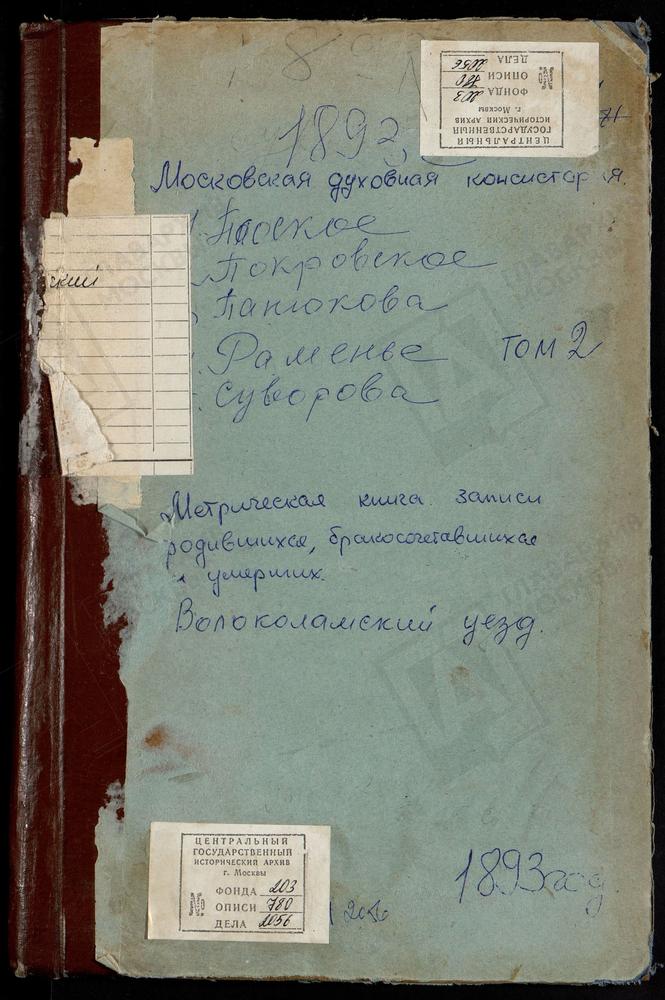 ДЕЛА 2056
ОПИСИ 780
ФОНДА 203
г. Москвы
ИСТОРИЧЕСКИЙ АРХИВ
ГОСУДАРСТВЕННЫЙ
ЦЕНТРАЛЬНЫЙ
1893
Московская духовная консистория.
Покровское
ский
Панюкова
Раменье том 2
Суворова
Метрическая книга записи
родившихся, бракосочетавшихся
и умерших.
Волоколамский уезд.
ЦЕНТРАЛЬНЫЙ
ГОСУДАРСТВЕННЫЙ
ИСТОРИЧЕСКИЙ АРХИВ
г. Москвы
ФОНДА 203
ОПИСИ 780
ДЕЛА 2056
2056
1893 год